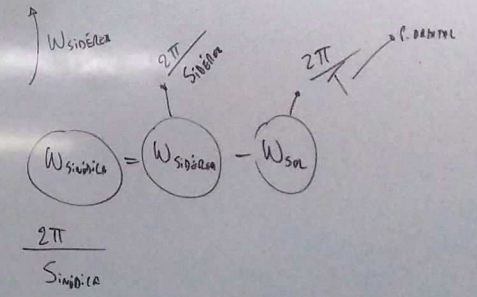 W SIDÉREA
2π / SIDÉREA
2π / T
P. ORBITAL
W SINÓDICA = W SIDÉREA - W SOL
2π
SINÓDICA